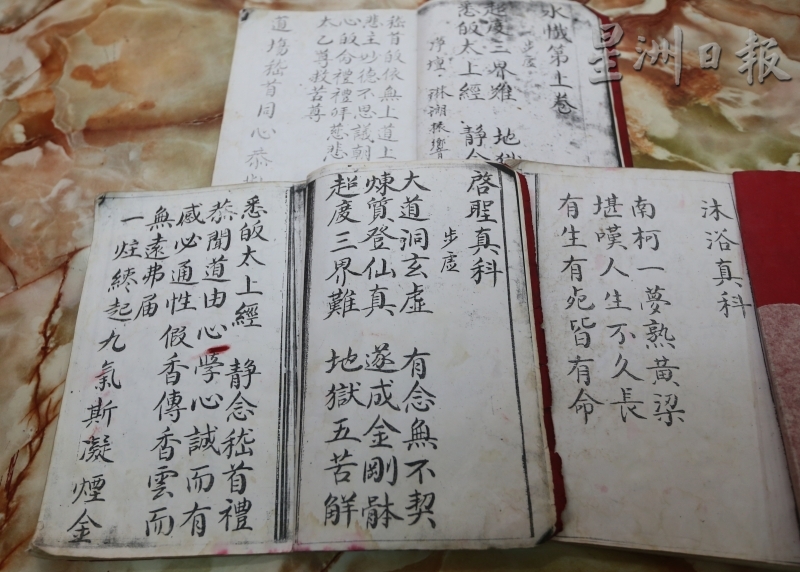 星洲日報
水懺第上卷
步虛
起度三界難、地
悉皈太上經 靜念
淨壇、琳瑯振響
嵇首皈依無上道上
悲主妙德不思議朝
心皈命禮禮拜慈悲
太乙尊救苦尊
道塲嵇首同心恭
沐浴真科
南柯一夢熟黃梁
堪嘆人生不久長
有生有死皆有命
啓聖真科
步虛
大道洞玄虛 有念無不契
煉質登仙真 遂成金剛骵
超度三界難 地獄五苦解
悉皈太上經 靜念嵇首禮
恭聞道由心學心誠而有
感必通性假香傳香雲而
無遠弗届
一炷終起九氣斯凝煙金